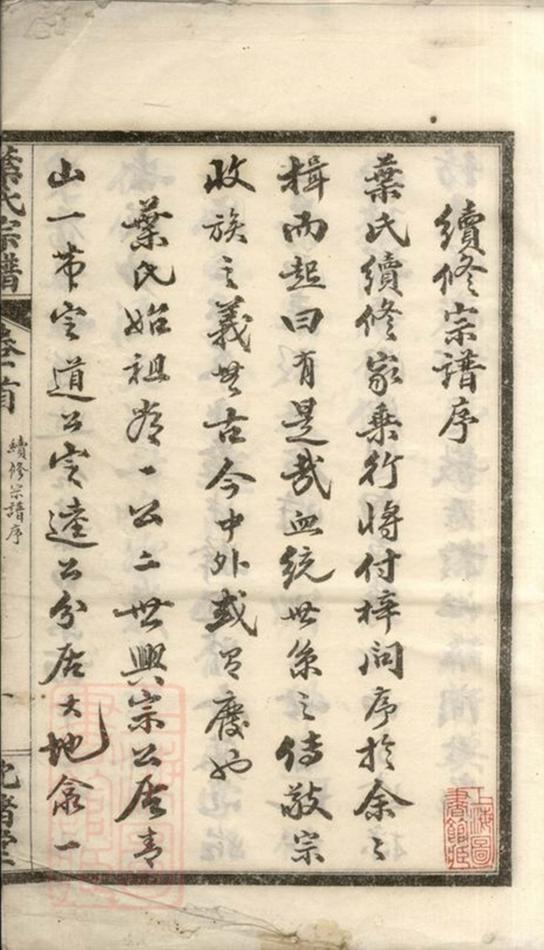 續修宗譜序
葉氏續修家乘行將付梓問序於余々
揖而起曰有是哉血統世系之傳敬宗
收族之義無古今中外或可廢也
葉氏始祖秀一公二世興宗公居青
山一带定道公定達公分居大地龕一
葉氏宗譜
卷首
續修宗譜序
一
上海圖書館藏